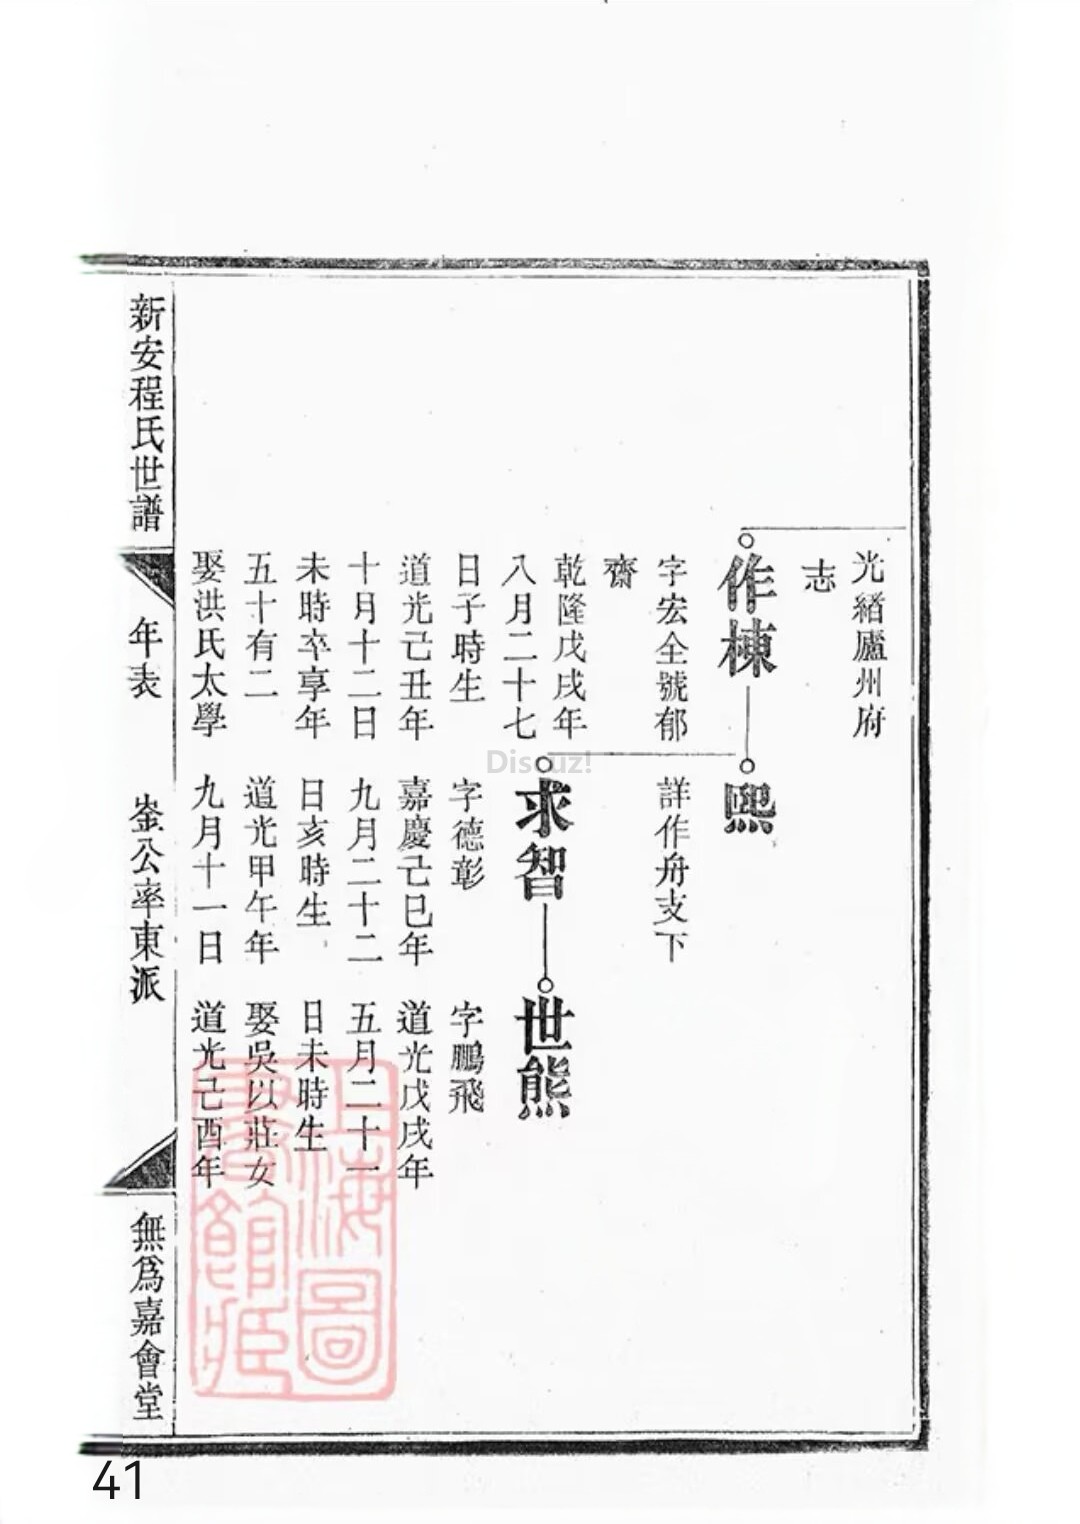 光緒廬州府
志
作棟
字宏全號郁
齋
乾隆戊戌年
八月二十七
日子時生
道光己丑年
十月十二日
未時卒享年
五十有二
娶洪氏太學
熙
詳作舟支下
求智
字德彰
嘉慶己巳年
九月二十二
日亥時生
道光甲午年
九月十一日
世熊
字鵬飛
道光戊戌年
五月二十一
日未時生
娶吳以莊女
道光己酉年
新安程氏世譜
年表
崟公率東派
無爲嘉會堂
上海圖
書館藏
Discuz!
41